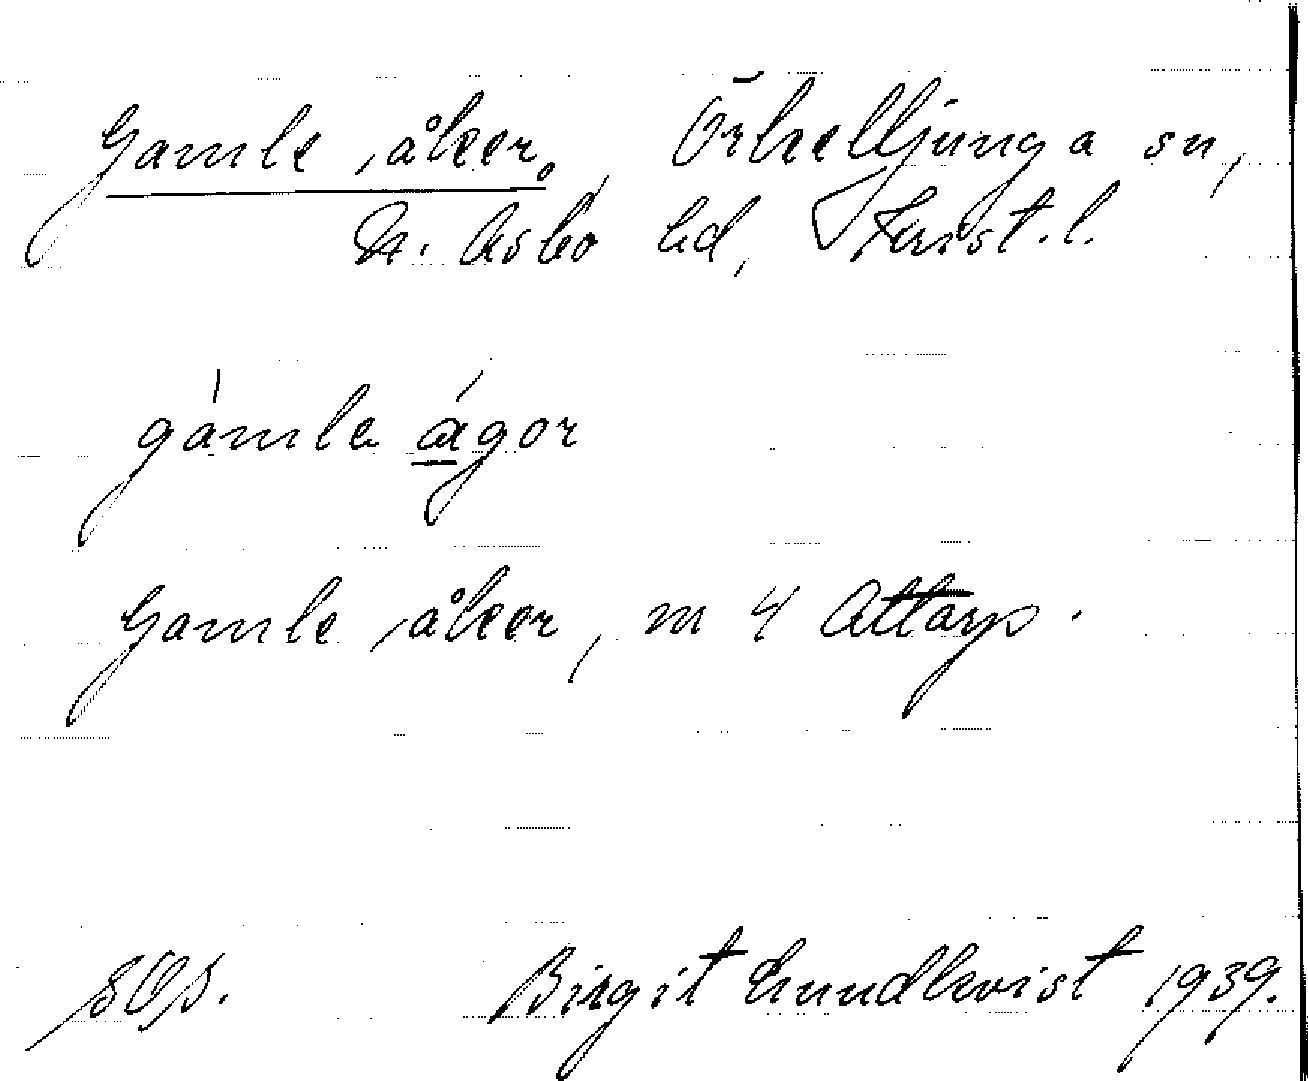 Gamle åker, Örkelljunga sn,
N. Åsbo hd, Krist. l.
gámla ágor
Gamle åker, m 4 Attarp.
Birgit Lundkvist 1939.